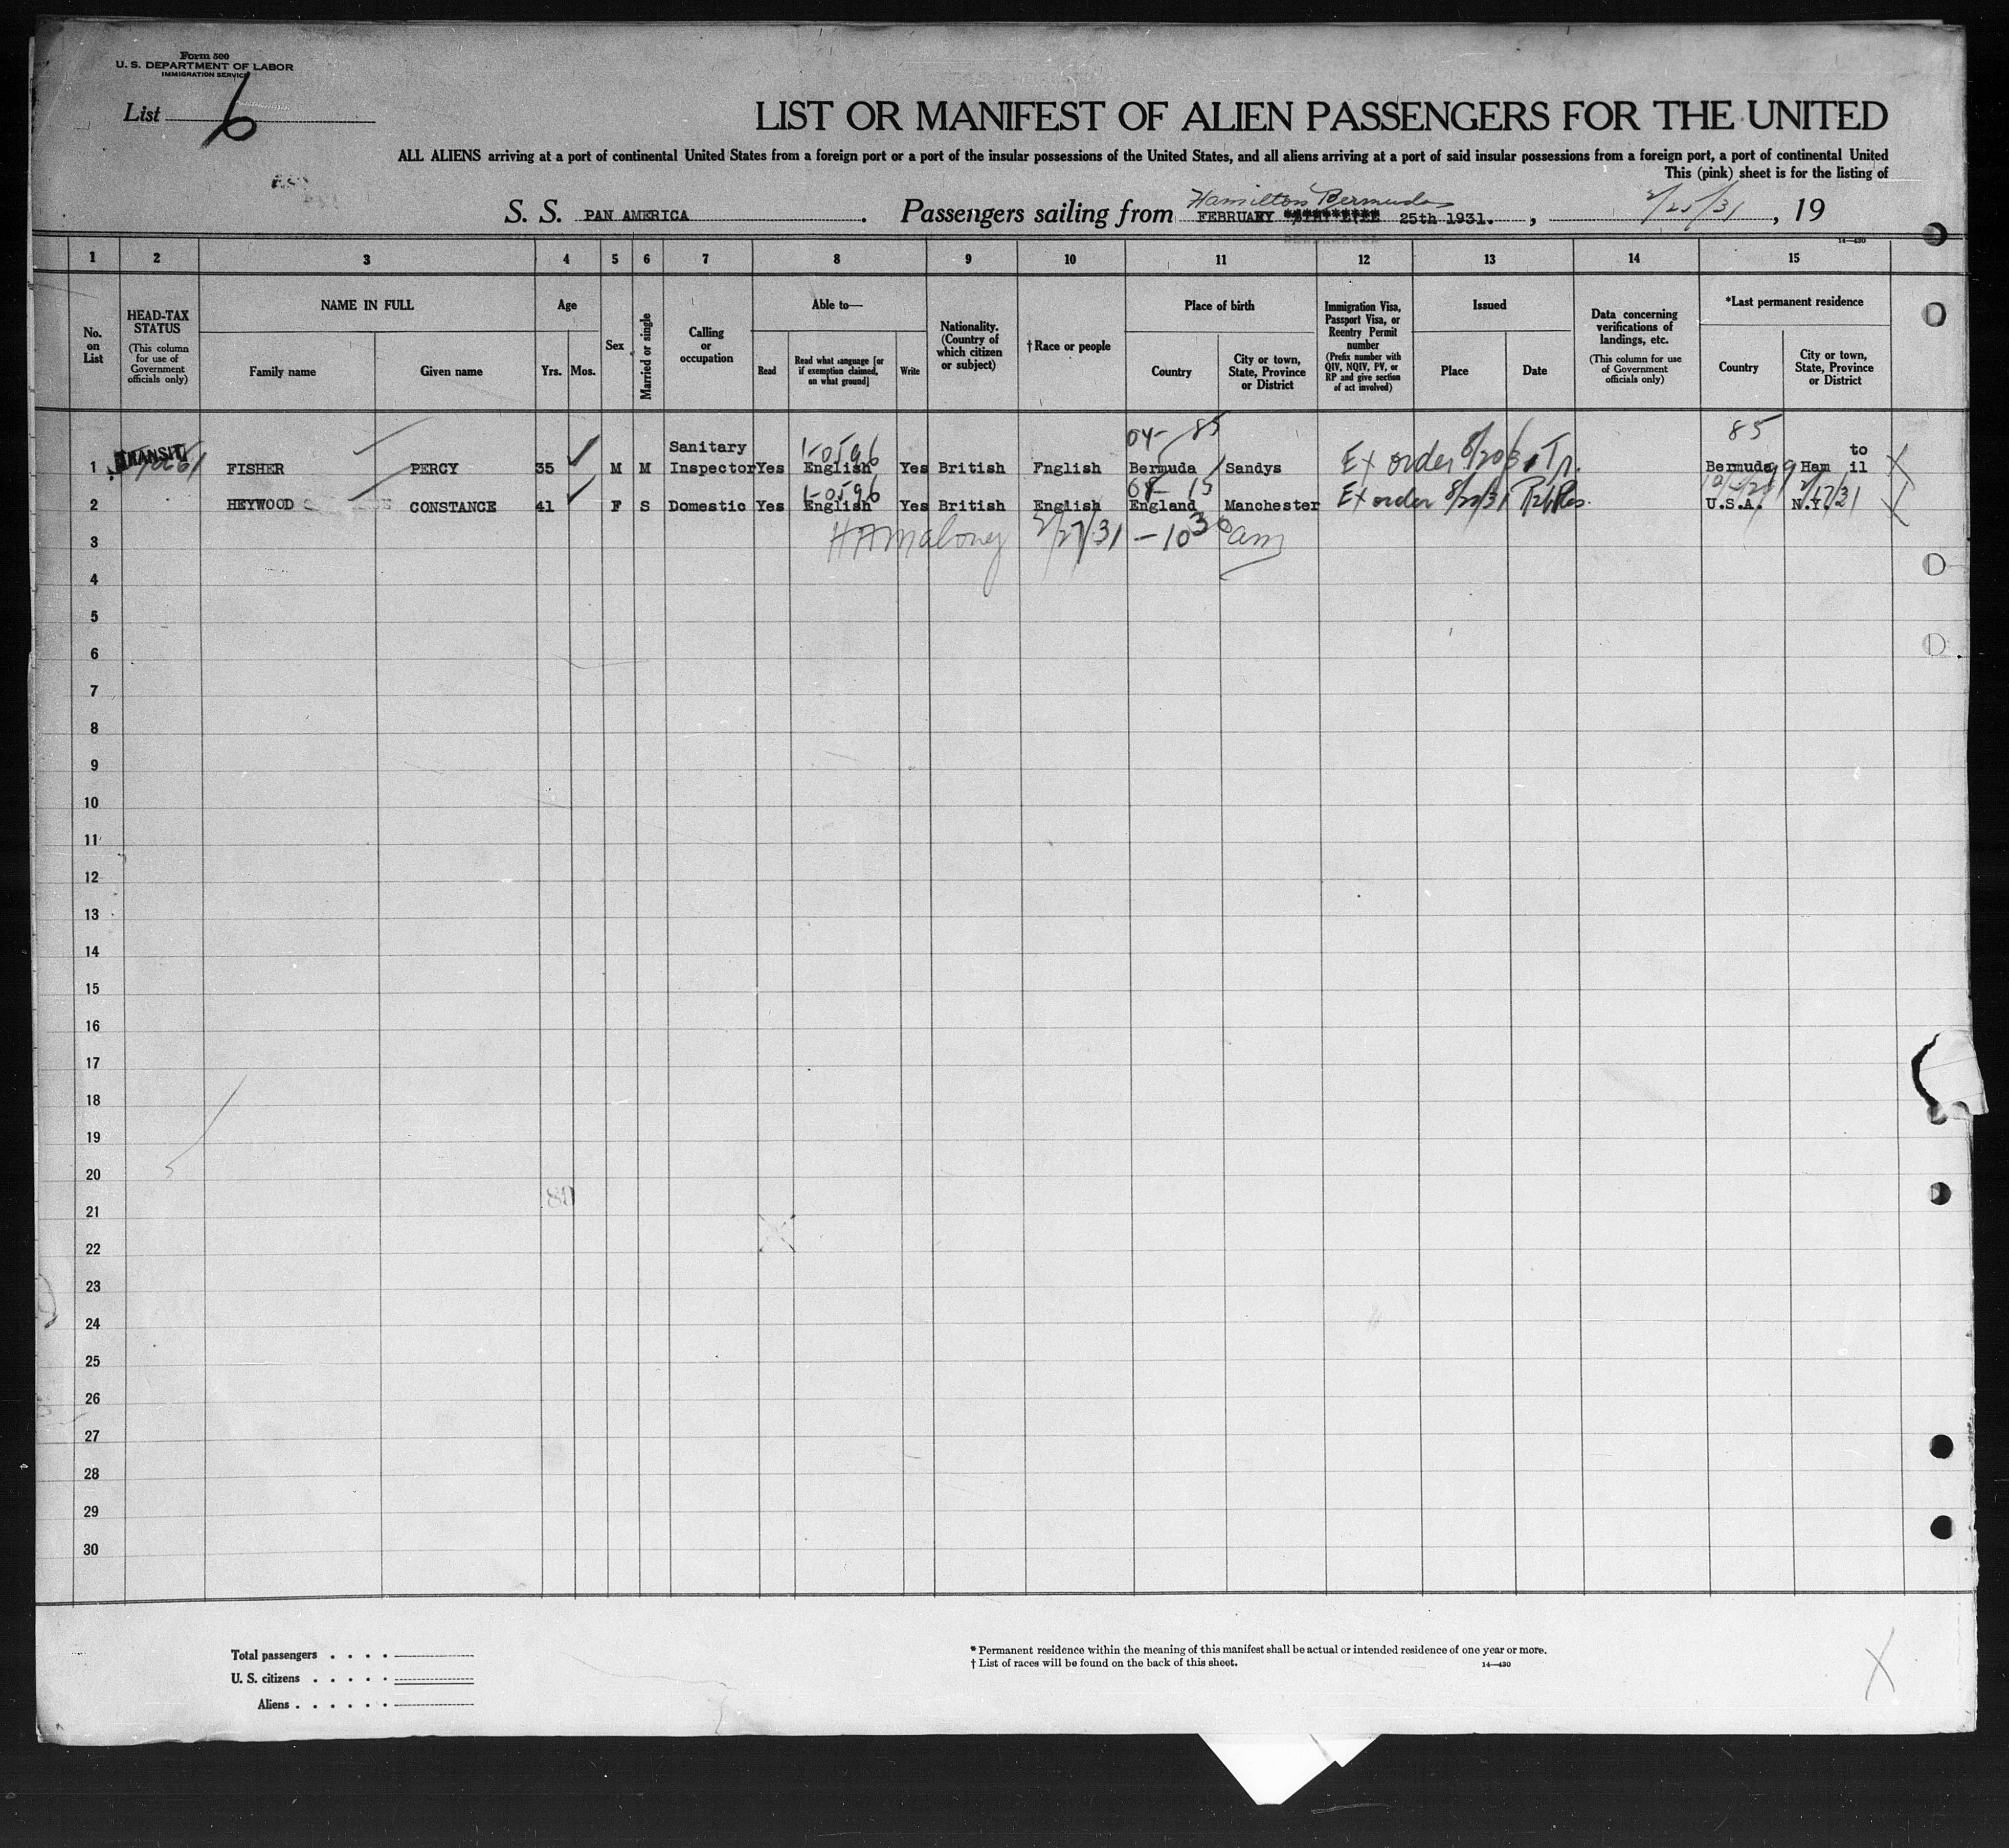 Form 500
U. S. DEPARTMENT OF LABOR
IMMIGRATION SERVICE
List 6
LIST OR MANIFEST OF ALIEN PASSENGERS FOR THE UNITED
ALL ALIENS arriving at a port of continental United States from a foreign port or a port of the insular possessions of the United States, and all aliens arriving at a port of said insular possessions from a foreign port, a port of continental United
This (pink) sheet is for the listing of
Hamilton Bermuda
S. S. PAN AMERICA. Passengers sailing from FEBRUARY 25th 1931. , 2/25/31, 19
14—430
1 2 3 4 5 6 7 8 9 10 11 12 13 14 15
No. on List
HEAD-TAX STATUS
(This column for use of Government officials only)
NAME IN FULL
Family name
Given name
Age
Yrs. Mos.
Sex
Married or single
Calling or occupation
Able to—
Read
Read what language [or if exemption claimed, on what ground]
Write
Nationality. (Country of which citizen or subject)
†Race or people
Place of birth
Country
City or town, State, Province or District
Immigration Visa, Passport Visa, or Reentry Permit number
(Prefix number with QIV, NQIV, PV, or RP and give section of act involved)
Issued
Place
Date
Data concerning verifications of landings, etc.
(This column for use of Government officials only)
*Last permanent residence
Country
City or town, State, Province or District
04- 85 85
TRANSIT Sanitary 1-0596 to
1 FISHER PERCY 35 M M Inspector Yes English Yes British Fnglish Bermuda Sandys Ex order Tr. Bermuda Ham il
1-0596 08- 15
2 HEYWOOD CONSTANCE 41 F S Domestic Yes English Yes British English England Manchester Ex order U.S.A. N.Y.
3 HAMaloney 2/27/31 - 10 30 am
4
5
6
7
8
9
10
11
12
13
14
15
16
17
18
19
20
21
22
23
24
25
26
27
28
29
30
Total passengers . . . .
U. S. citizens . . . . .
Aliens . . . . . .
* Permanent residence within the meaning of this manifest shall be actual or intended residence of one year or more.
† List of races will be found on the back of this sheet.
14—430